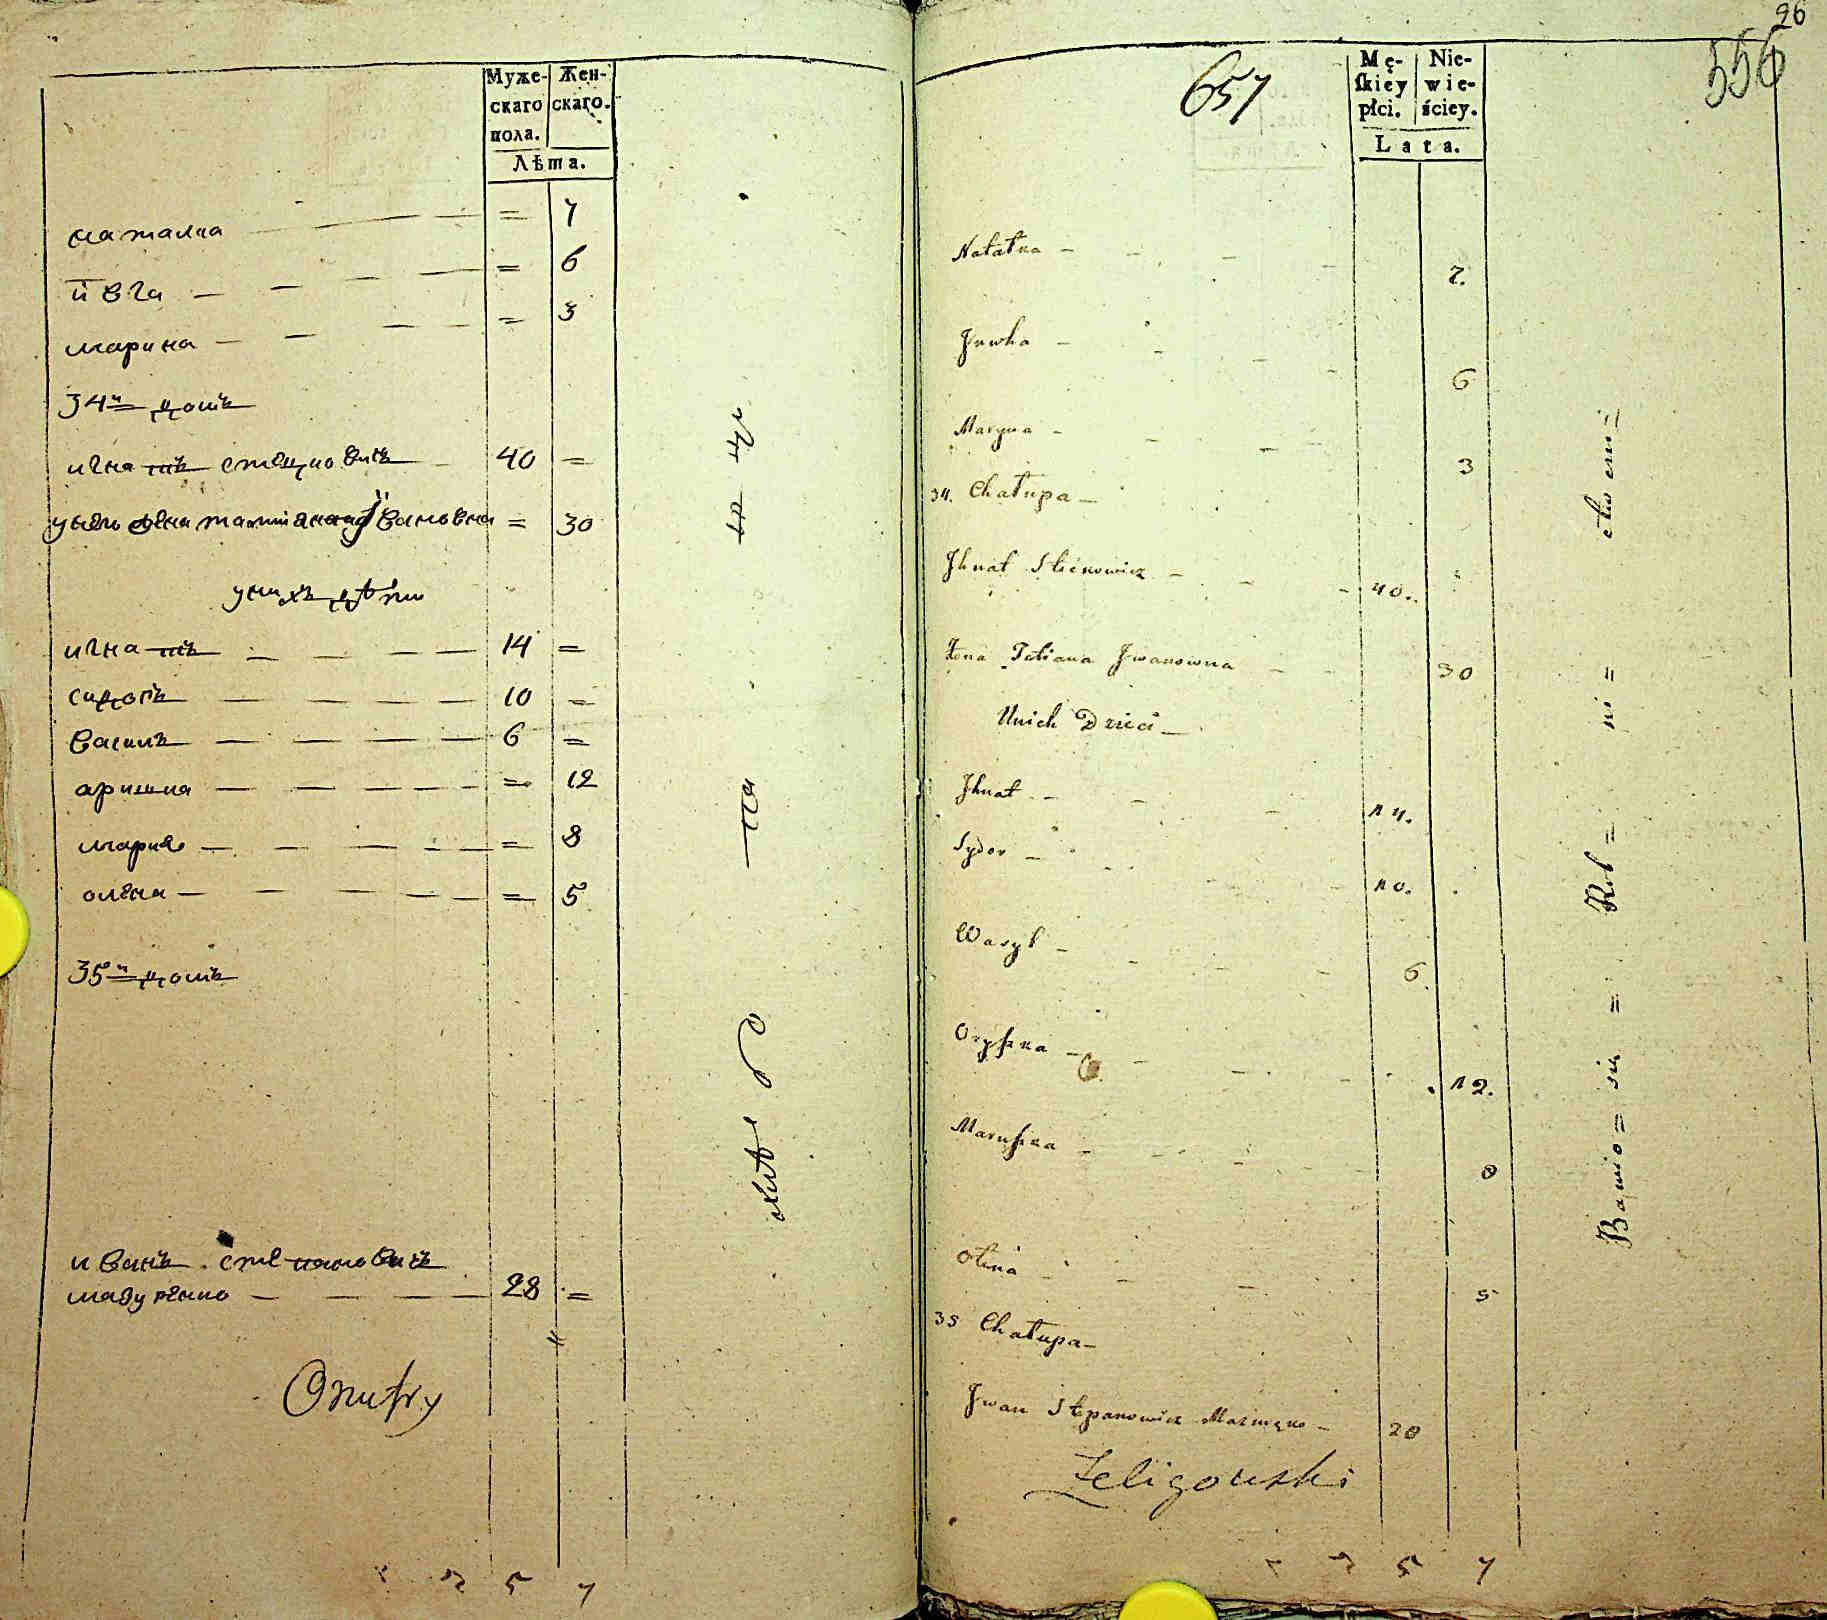 Муже-
скаго
пола.
Жен-
скаго.
Лѣта.
наталка = 7
ивга = 6
марина = 3
34й домъ
игнатъ стецковичъ 40 =
унего жена татиана Ивановна = 30
унихъ дѣти
игнатъ 14 =
сидоръ 10 =
василь 6 =
аришка = 12
мария = 8
олена = 5
35й домъ
иванъ степановичъ
мазуренко 28 =
Onufry
26
556
657
Mę-
skiey
płci.
Nie-
wie-
ściey.
Lata.
Natałka 7.
Jewha 6
Maryna 3
34. Chałupa
Jhnat Stećkowicz 40.
Żona Tatiana Jwanowna 30
Unich Dzieci
Jhnat 14.
Sydor 10.
Wasyl 6.
Oryszka 12.
Maruszka 8
Ołena 5
35 Chałupa
Jwan Stepanowicz 28
Żeligowski
5 7
5 7